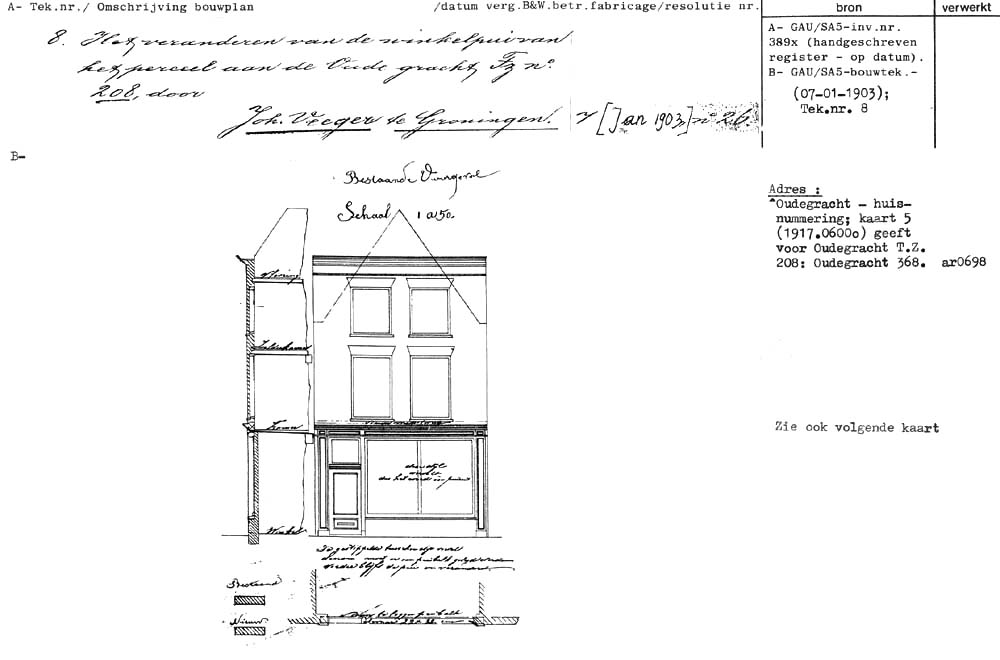 A- Tek.nr./ Omschrijving bouwplan /datum verg.B&W.betr.fabricage/resolutie nr. bron verwerkt
8. Het veranderen van de winkelpui van
het perceel aan de Oude gracht, Fz nº
208, door
Joh. Vreger te Groningen. 7 [Jan 1903] nº 26.
A- GAU/SA5-inv.nr.
389x (handgeschreven
register - op datum).
B- GAU/SA5-bouwtek.-
(07-01-1903);
Tek.nr. 8
B-
Bestaande Voorgevel
Schaal 1 a 50.
Adres :
*Oudegracht - huis-
nummering; kaart 5
(1917.0600o) geeft
voor Oudegracht T.Z.
208: Oudegracht 368. ar0698
Zie ook volgende kaart
Zolder
Winkel
Bestaand
Nieuw